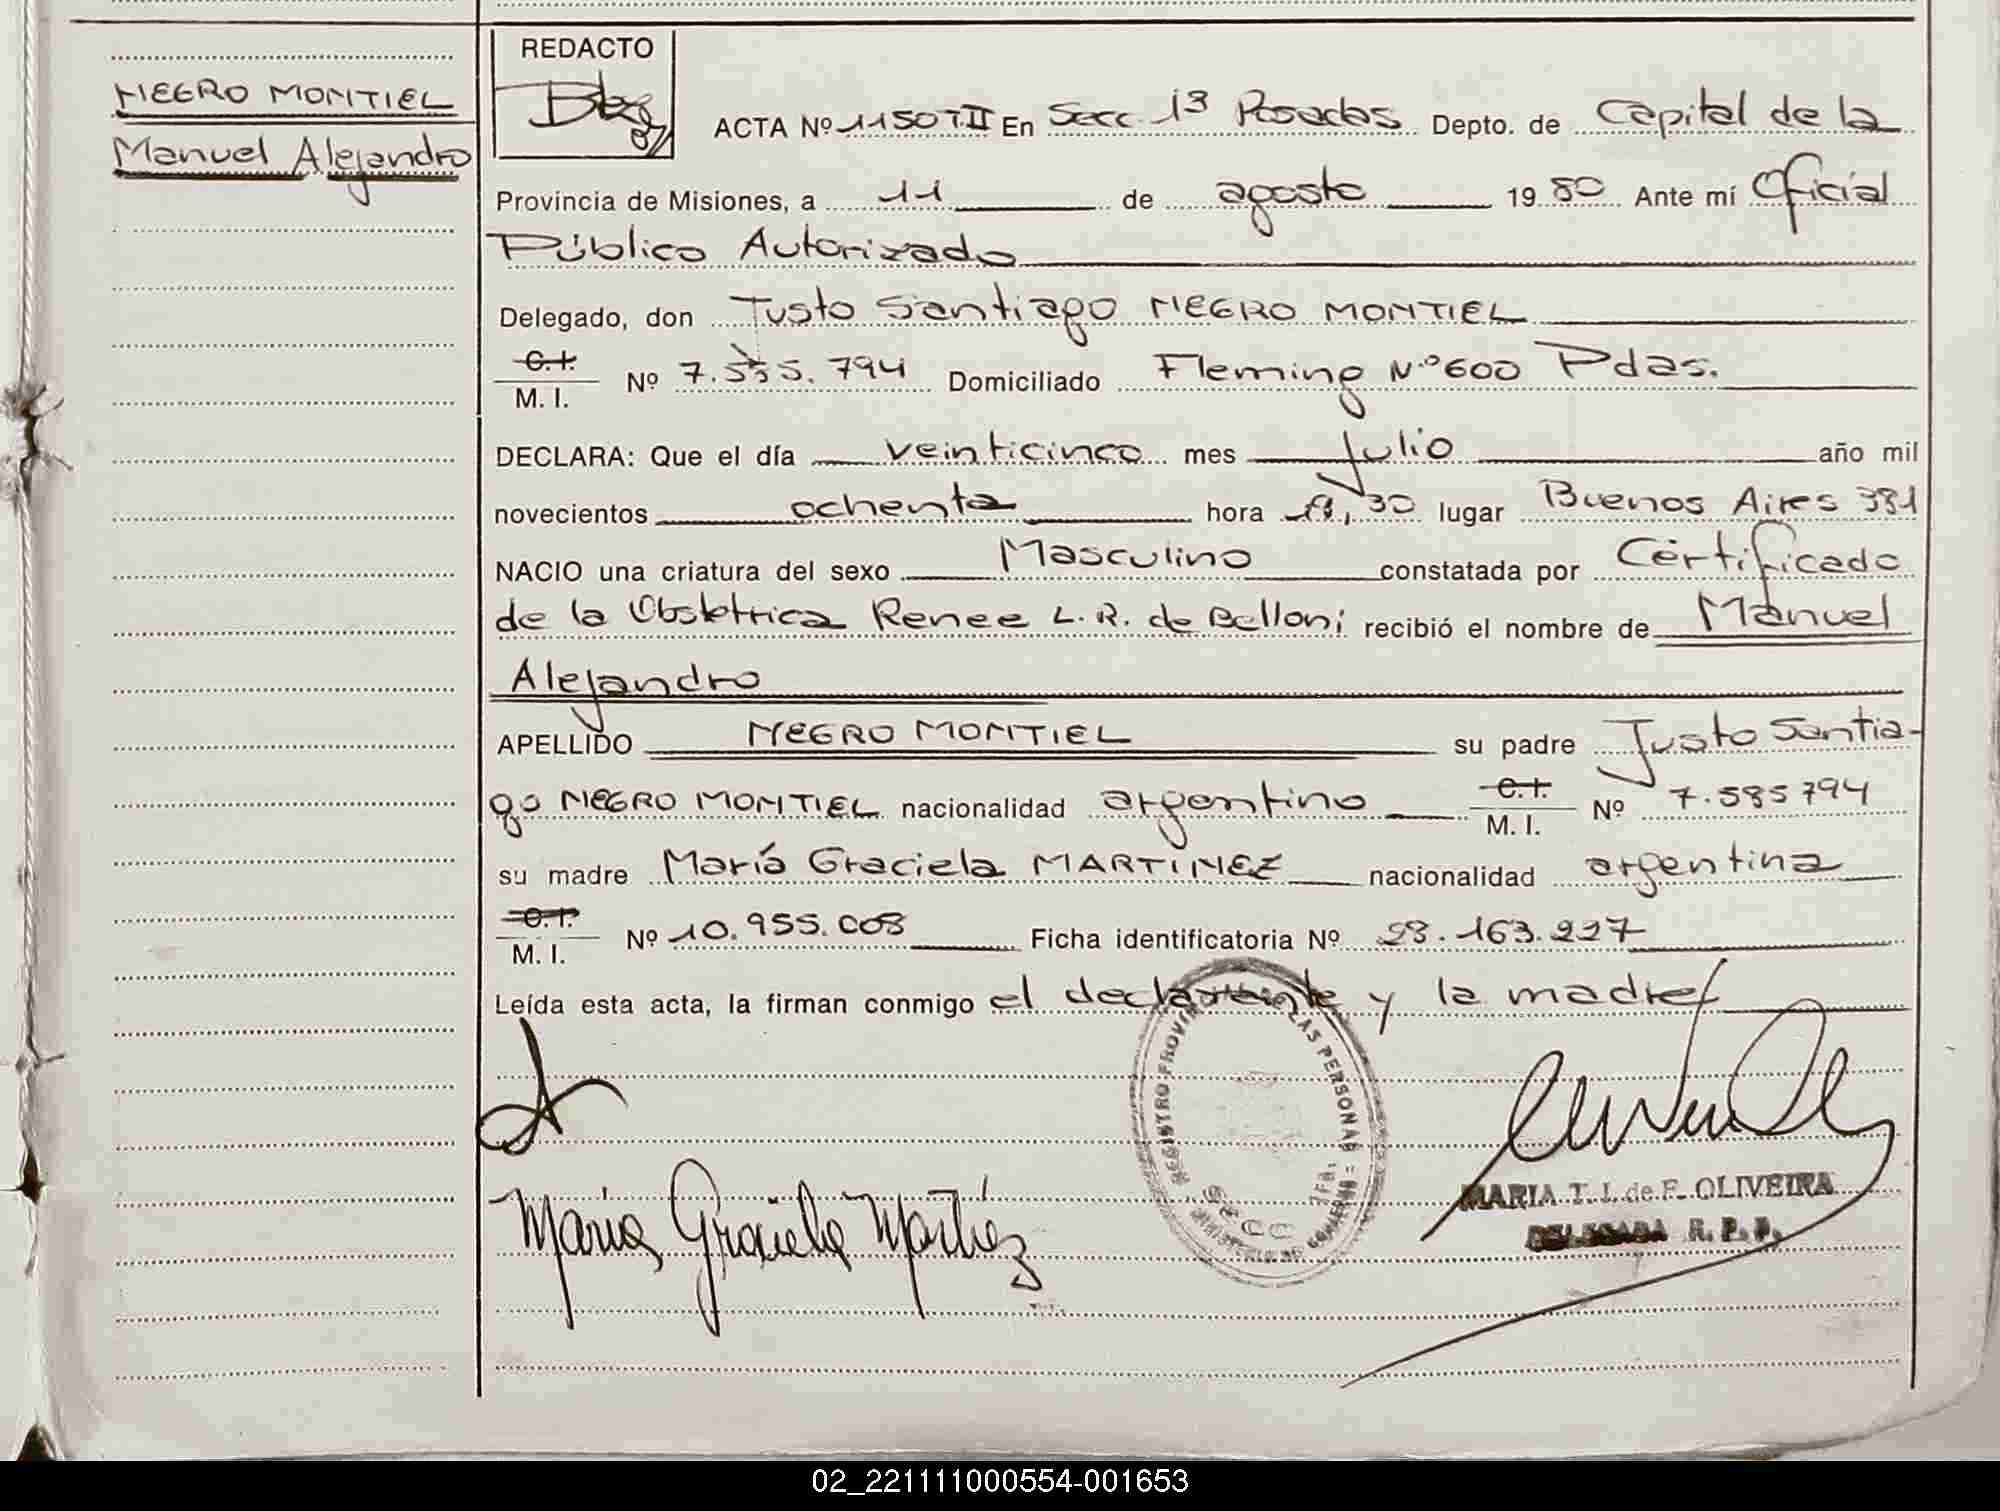 NEGRO MONTIEL
Manuel Alejandro
REDACTO
ACTA Nº 1150 T II En Secc. 1ª Posadas Depto. de Capital de la
Provincia de Misiones, a 11 de agosto 1980 Ante mí Oficial
Público Autorizado
Delegado, don Justo Santiago NEGRO MONTIEL
C.I.
M. I. Nº 794 Domiciliado Fleming Nº 600 Pdas.
DECLARA: Que el día veinticinco mes Julio año mil
novecientos ochenta hora lugar Buenos Aires 331
NACIO una criatura del sexo Masculino constatada por Certificado
de la Obstetrica Renee L. R. de Belloni recibió el nombre de Manuel
Alejandro
APELLIDO NEGRO MONTIEL su padre Justo Santia-
go NEGRO MONTIEL nacionalidad argentino C.I.
M. I. Nº 7.585794
su madre María Graciela MARTINEZ nacionalidad argentina
C.I.
M. I. Nº 10.955.008 Ficha identificatoria Nº 28.163.227
Leída esta acta, la firman conmigo el declarante y la madre
María Graciela Martínez
REGISTRO PROVINCIAL DE LAS PERSONAS
SECC. 1ra.
MINISTERIO DE GOBIERNO
MARIA T. I. de F. OLIVEIRA
DELEGADA R. P. P.
02_221111000554-001653